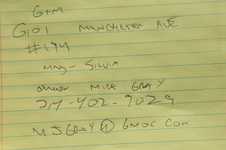 G+M
6101 MANCHESTER AVE
#194
MAG - SILVIA
OWNER MIKE GRAY
714-402-9029
MJGRAY@6MOC.COM